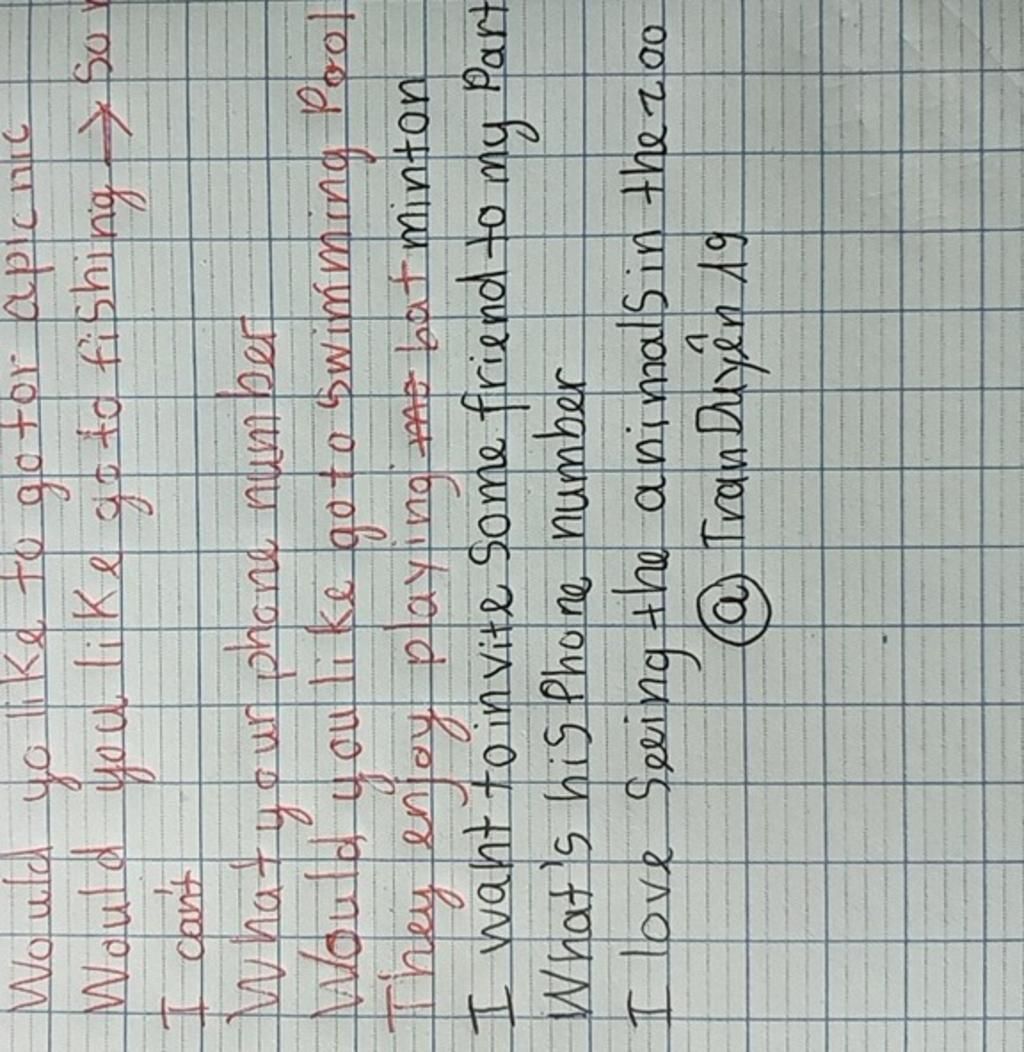 Would yo like to go for a picnic
Would you like go to fishing →
I can't
What your phone number
Would you like go to swimming Pool
They enjoy playing batminton
I want to invite Some friend to my Part
What's his Phone number
I love Seeing the animals in the zoo
@ Tran Duyên 19